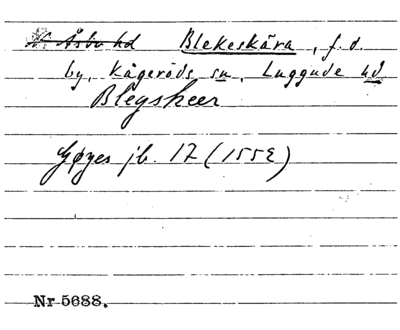 N. Åsbo hd Blekeskära, f.d.
by, Kågeröds sn, Luggude hd
Blegsheer
Gøyes jb. 17 (1552)
Nr 5688.